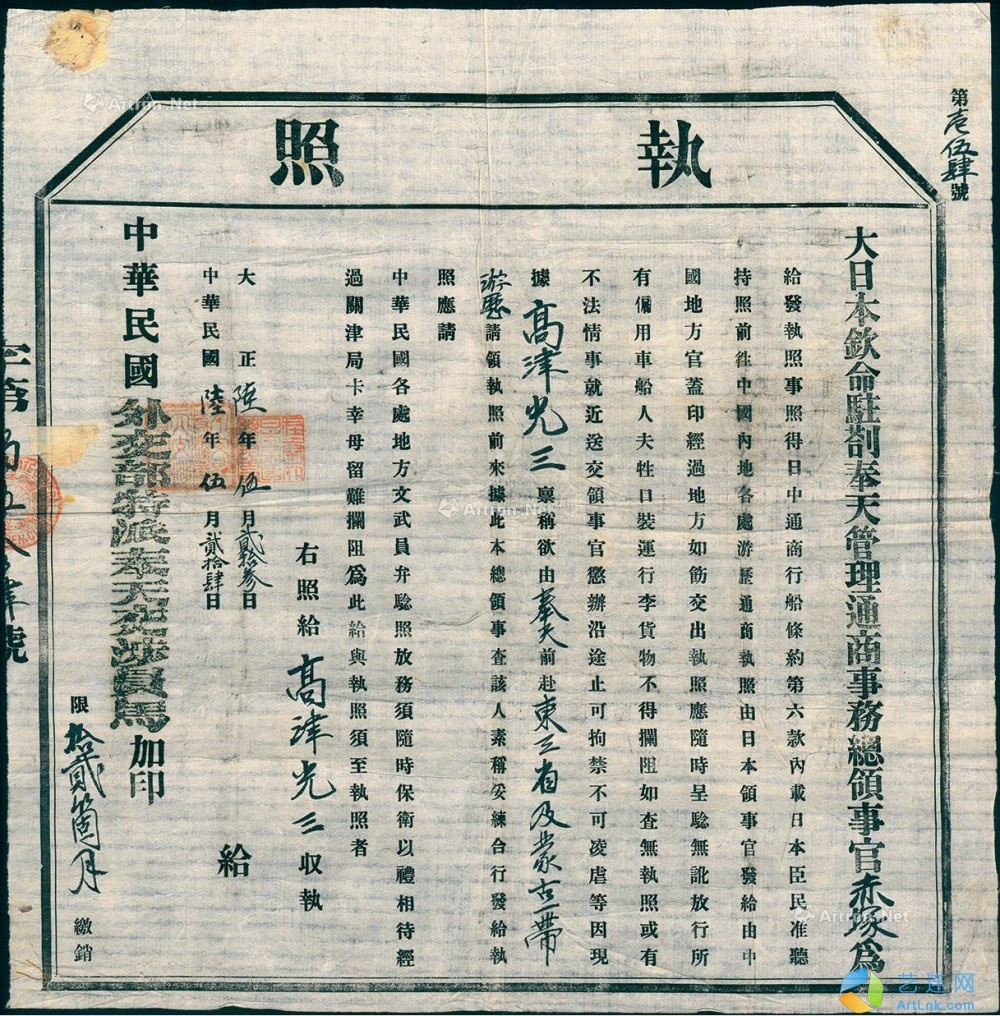 執照
第壱伍肆號
大日本欽命駐劄奉天管理通商事務總領事官赤塚為
給發執照事照得日中通商行船條約第六款內載日本臣民准聽
持照前往中國內地各處游歷通商執照由日本領事官發給由中
國地方官蓋印經過地方如飭交出執照應隨時呈驗無訛放行所
有僱用車船人夫牲口裝運行李貨物不得攔阻如查無執照或有
不法情事就近送交領事官懲辦沿途止可拘禁不可凌虐等因現
據高津光三稟稱欲由奉天前赴東三省及蒙古一帶
游歷請領執照前來據此本總領事查該人素稱妥練合行發給執
照應請
中華民國各處地方文武員弁驗照放務須隨時保衛以禮相待經
過關津局卡幸毋留難攔阻為此給與執照須至執照者
右照給高津光三收執
大正陸年伍月貳拾參日
給
中華民國陸年伍月貳拾肆日
中華民國外交部特派奉天交涉員馬加印
限拾貳箇月繳銷
字第
號
Artron.Net
Artron.Net
Artron.Net
艺连网
ArtLnk.com